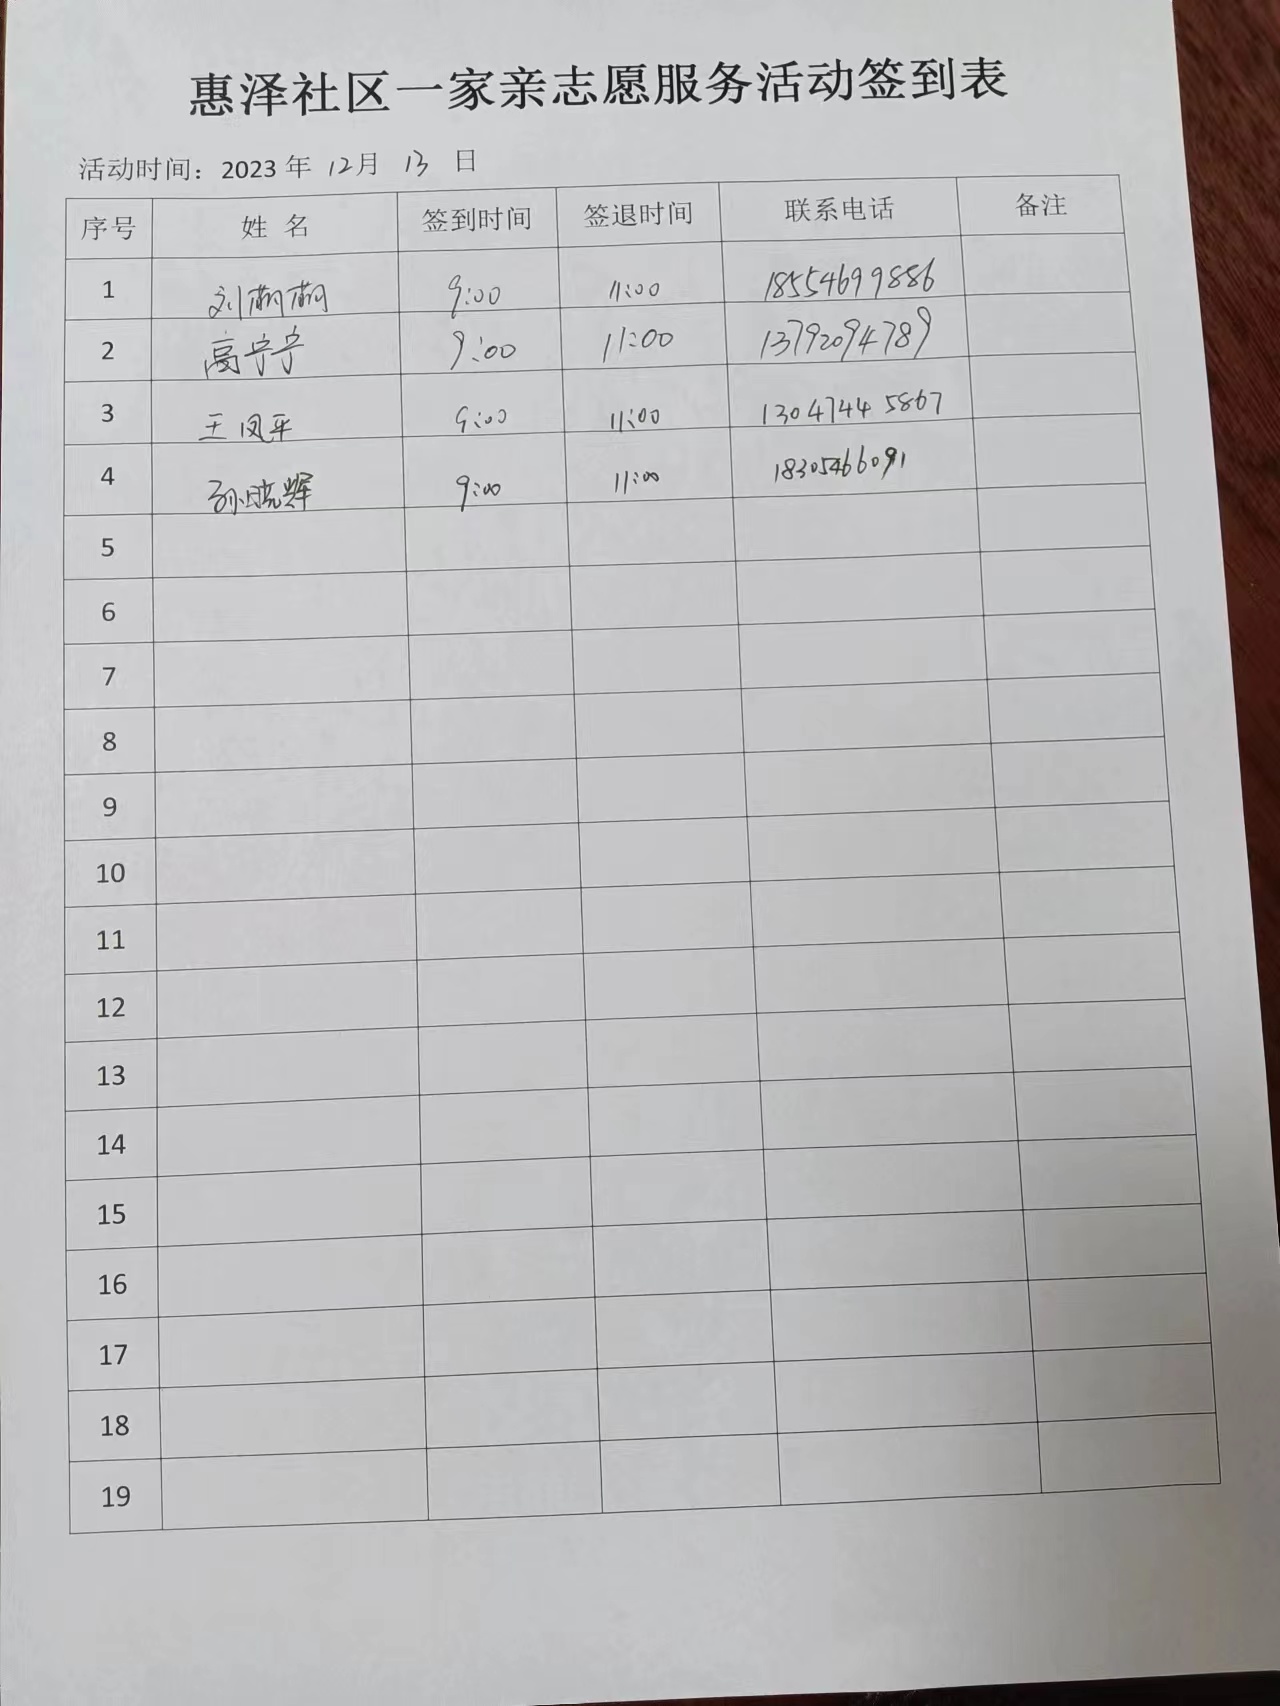 惠泽社区一家亲志愿服务活动签到表
活动时间：2023 年 12月 13 日
序号 姓 名 签到时间 签退时间 联系电话 备注
1 刘 9:00 11:00 18554699886
2 高宁宁 9:00 11:00 13792094789
3 王凤平 9:00 11:00 13047445867
4 孙晓辉 9:00 11:00 18305466091
5
6
7
8
9
10
11
12
13
14
15
16
17
18
19